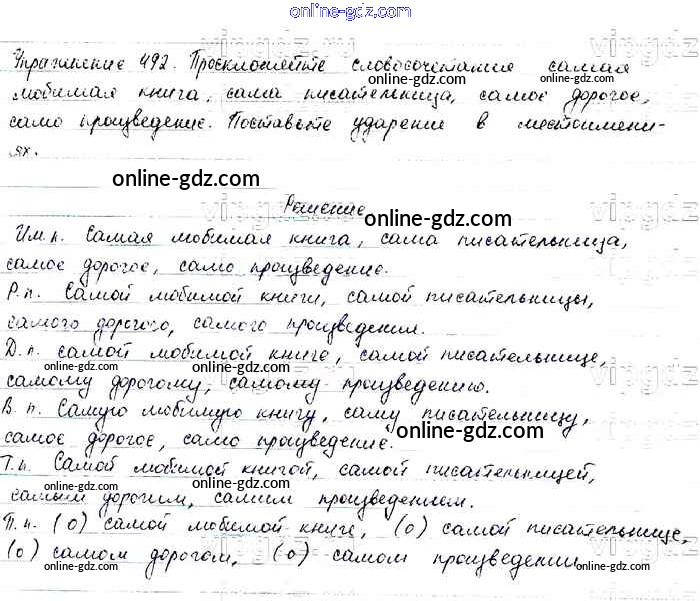 online-gdz.com
Упражнение 492. Просклоняйте словосочетания самая
online-gdz.com online-gdz.com
любимая книга, сама писательница, самое дорогое,
само произведение. Поставьте ударение в местоимени-
online-gdz.com
ях.
online-gdz.com
Решение
online-gdz.com
Им.п. Самая любимая книга, сама писательница,
самое дорогое, само произведение.
Р.п. Самой любимой книги, самой писательницы,
online-gdz.com
самого дорогого, самого произведения.
Д.п. самой любимой книге, самой писательнице,
самому дорогому, самому произведению.
В.п. Самую любимую книгу, саму писательницу,
online-gdz.com
самое дорогое, само произведение.
Т.п. Самой любимой книгой, самой писательницей,
самым дорогим, самим произведением.
П.п. (о) самой любимой книге, (о) самой писательнице,
online-gdz.com
(о) самом дорогом, (о) самом произведении
online-gdz.com